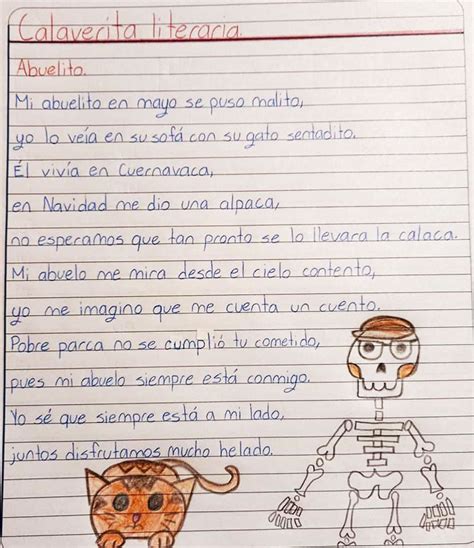 Calaverita literaria.
Abuelito.
Mi abuelito en mayo se puso malito,
yo lo veía en su sofá con su gato sentadito.
Él vivía en Cuernavaca,
en Navidad me dio una alpaca,
no esperamos que tan pronto se lo llevara la calaca.
Mi abuelo me mira desde el cielo contento,
yo me imagino que me cuenta un cuento.
Pobre parca no se cumplió tu cometido,
pues mi abuelo siempre está conmigo.
Yo sé que siempre está a mi lado,
juntos disfrutamos mucho helado.